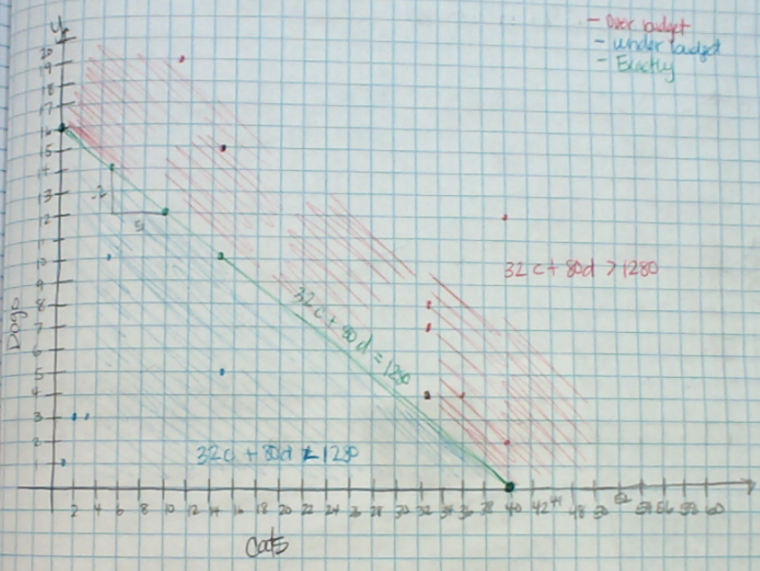 y
- Over budget
- under budget
- Exactly
20
19
18
17
16
15
14
13
12
11
10
9
8
7
6
5
4
3
2
1
-2
5
32c + 80d > 1280
32c + 80d = 1280
32c + 80d < 1280
Dogs
2 4 6 8 10 12 14 16 18 20 22 24 26 28 30 32 34 36 38 40 42 44 48 50 52 54 56 58 60
Cats